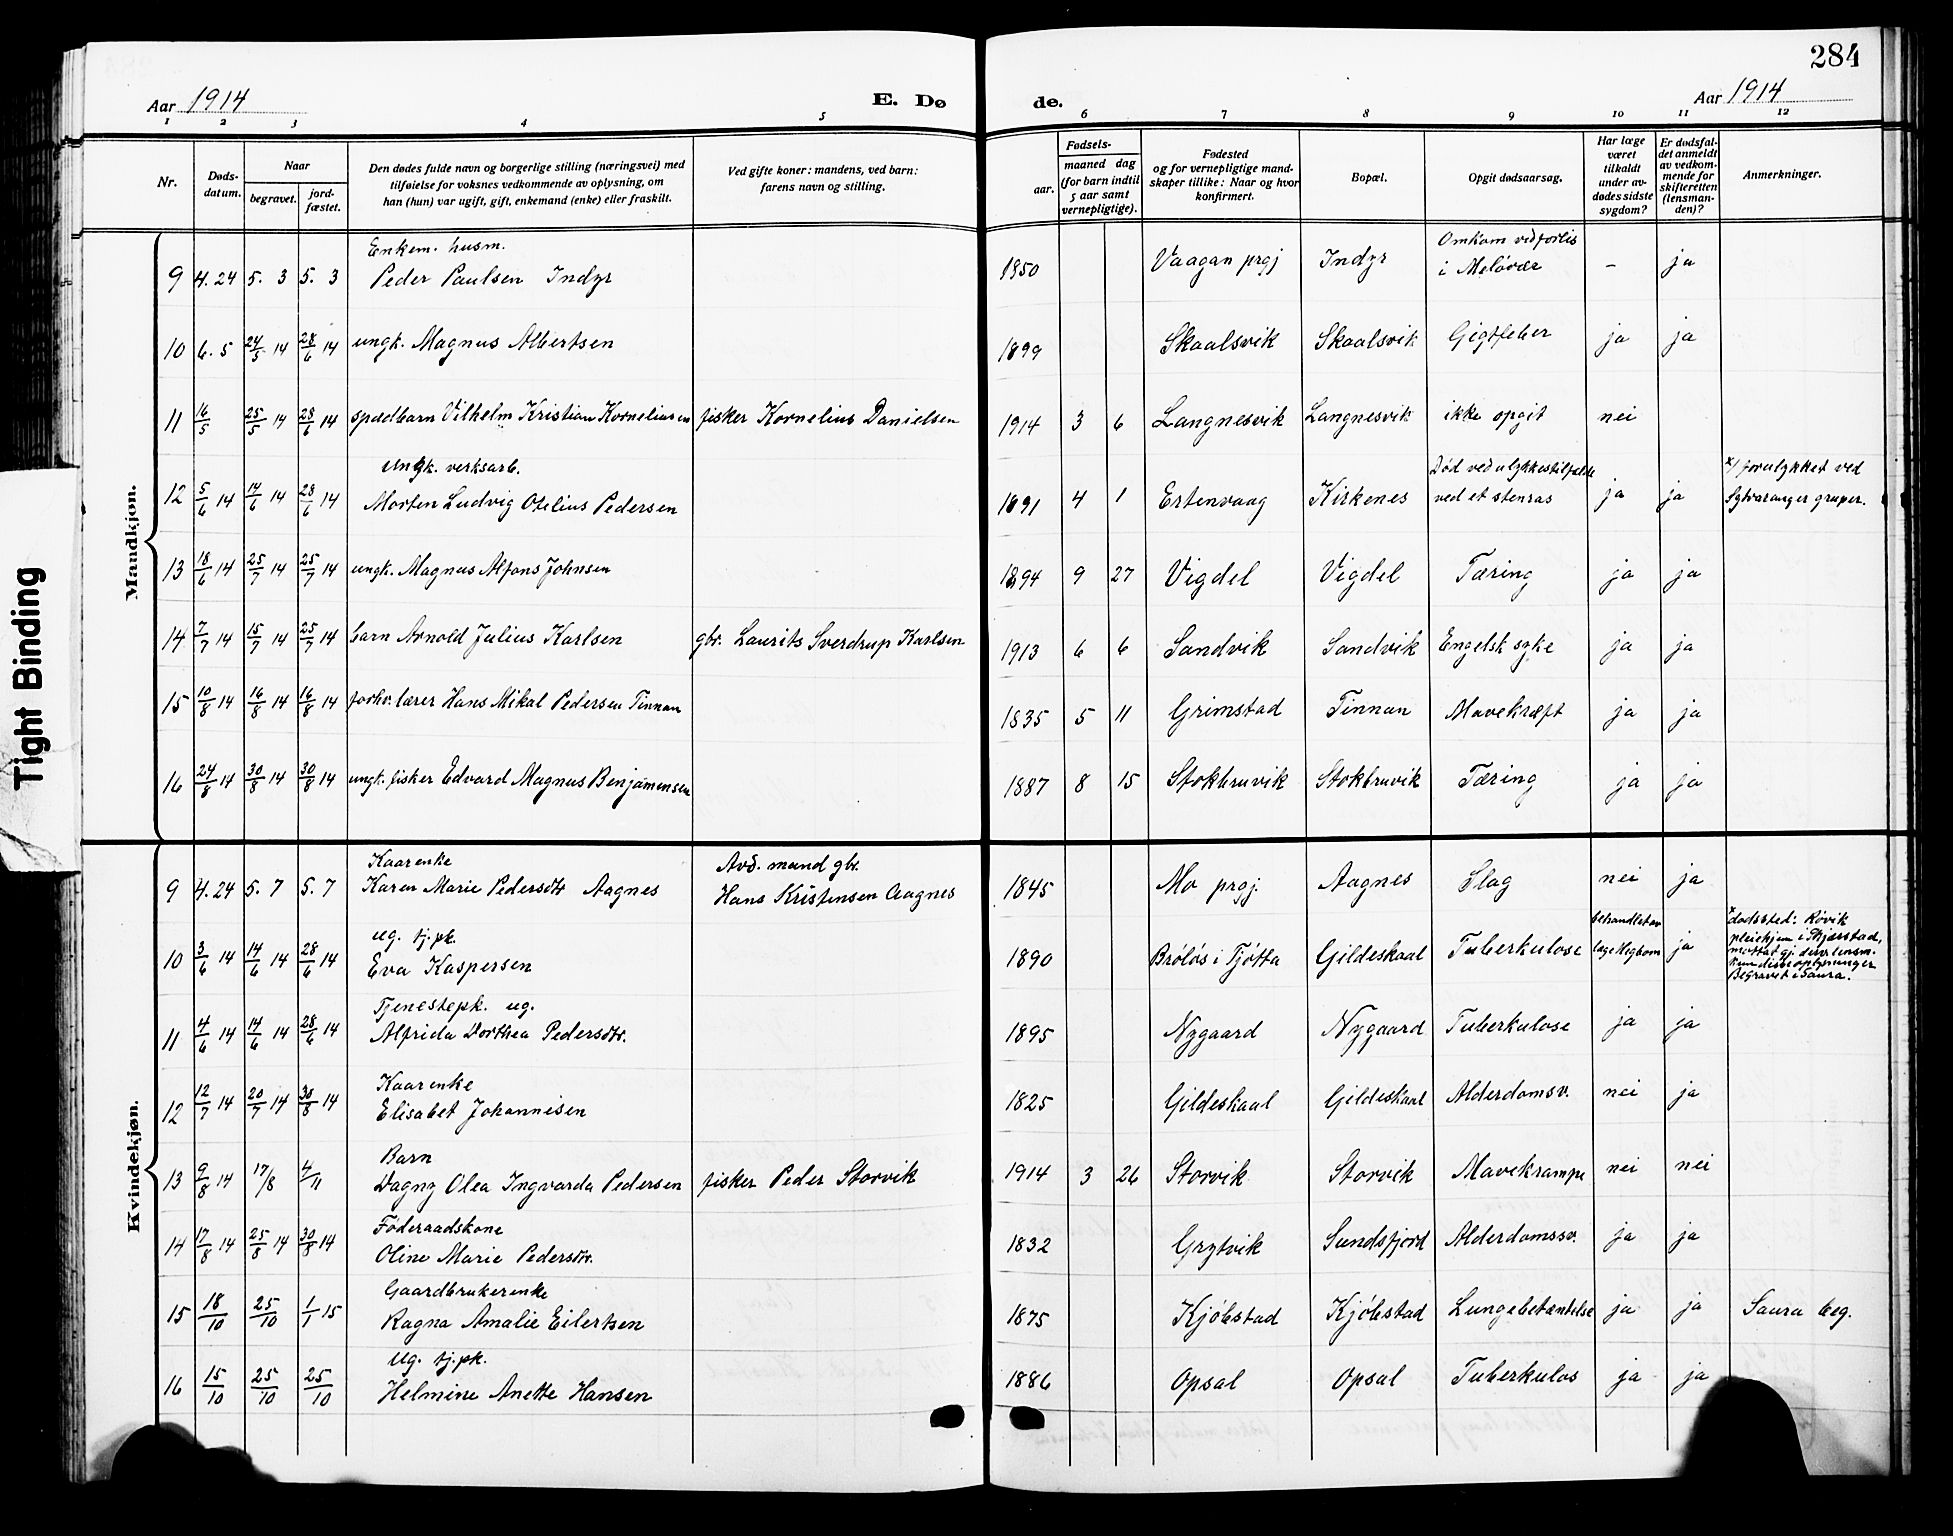 284
Aar 1914 E. Dø de. Aar 1914
1 2 3 4 5 6 7 8 9 10 11 12
Nr.
Døds-
datum.
Naar
begravet.
jord-
fæstet.
Den dødes fulde navn og borgerlige stilling (næringsvei) med
tilføielse for voksnes vedkommende av oplysning, om
han (hun) var ugift, gift, enkemand (enke) eller fraskilt.
Ved gifte koner: mandens, ved barn:
farens navn og stilling.
Fødsels-
aar.
maaned dag
(for barn indtil
5 aar samt
vernepligtige).
Fødested
og for vernepligtige mand-
skaper tillike: Naar og hvor
konfirmert.
Bopæl.
Opgit dødsaarsag.
Har læge
været
tilkaldt
under av-
dødes sidste
sygdom?
Er dødsfal-
det anmeldt
av vedkom-
mende for
skifteretten
(lensman-
den)?
Anmerkninger.
Mandkjøn.
Enkem. husm. Omkom ved forlis
9 4.24 5. 3 5. 3 Peder Paulsen Indyr 1850 Vaagan prgj Indyr i Meløvær - ja
10 6.5 24/5 14 28/6 14 ungk. Magnus Albertsen 1899 Skaalsvik Skaalsvik Gigtfeber ja ja
11 16/5 25/5 14 28/6 14 spædbarn Vilhelm Kristian Korneliussen fisker Kornelius Danielsen 1914 3 6 Langnesvik Langnesvik ikke opgit nei
ungk. verksarb. Død ved ulykkestilfælde x) forulykket ved
12 5/6 14 14/6 14 28/6 14 Morten Ludvig Otelius Pedersen 1891 4 1 Ertenvaag Kirkenes ved et stenras ja ja Sydvaranger gruper.
13 18/6 14 25/7 14 25/7 14 ungk. Magnus Alfons Johnsen 1894 9 27 Vigdel Vigdel Tæring ja ja
14 7/7 14 15/7 14 25/7 14 barn Arnold Julius Karlsen gbr. Laurits Sverdrup Karlsen 1913 6 6 Sandvik Sandvik Engelsk syke ja ja
15 10/8 14 16/8 14 16/8 14 forhv. lærer Hans Mikal Pedersen Finnan 1835 5 11 Grimstad Finnan Mavekræft ja ja
16 24/8 14 30/8 14 30/8 14 ungk. fisker Edvard Magnus Benjamensen 1887 8 15 Stokbruvik Stokbruvik Tæring ja ja
Kvindekjøn.
Kaarenke Avd. mand gbr.
9 4.24 5. 7 5. 7 Karen Marie Pedersdtr Aagnes Hans Kristensen Aagnes 1845 Mo prgj. Aagnes Slag nei ja
ug. tj.pk. behandlet av x dødssted: Røvik
10 3/6 14 14/6 14 28/6 14 Eva Kaspersen 1890 Brøløs i Tjøtta Gildeskaal Tuberkulose læge Hegbom ja pleiehjem i Skjærstad,
mottat gj. derv. lensm.
kun disse oplysninger
Begravet i Saura.
Tjenestepk. ug.
11 4/6 14 14/6 14 28/6 14 Alfrida Dorthea Pedersdtr. 1895 Nygaard Nygaard Tuberkulose ja ja
Kaarenke
12 12/7 14 20/7 14 30/8 14 Elisabet Johannisen 1825 Gildeskaal Gildeskaal Alderdomsv. nei ja
Barn
13 9/8 14 17/8 4/11 Dagny Olea Ingvarda Pedersen fisker Peder Storvik 1914 3 26 Storvik Storvik Mavekrampe nei nei
Føderaadskone
14 17/8 14 25/8 14 30/8 14 Oline Marie Pedersdtr. 1832 Grytvik Sundsfjord Alderdomssv. ja ja
Gaardbrukerenke
15 18/10 25/10 1/1 15 Ragna Amalie Eilertsen 1875 Kjøbstad Kjøbstad Lungebetændelse ja ja Saura beg.
ug. tj.pk.
16 15/10 25/10 25/10 Helmine Anette Hansen 1886 Opsal Opsal Tuberkulos ja ja
Tight Binding